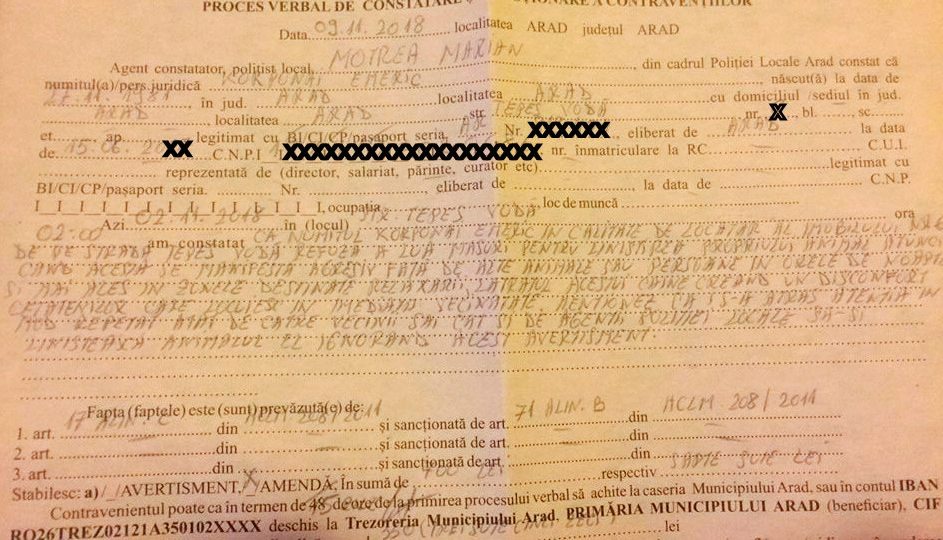 PROCES VERBAL DE CONSTATARE ȘI SANCȚIONARE A CONTRAVENȚIILOR
Data 09.11.2018 localitatea ARAD județul ARAD
Agent constatator, polițist local, MOTREA MARIAN din cadrul Poliției Locale Arad constat că
numitul(a)/pers.juridică KORPONAI EMERIC născut(ă) la data de
1981 în jud. ARAD localitatea ARAD cu domiciliul /sediul în jud.
ARAD, localitatea ARAD str. TEPES VODA nr. X, bl. sc.
et. ap. legitimat cu BI/CI/CP/pașaport seria, AR Nr. XXXXXX, eliberat de ARAD la data
de 15.06. XX C.N.P.I XXXXXXXXXXXXXXXXXXXXX nr. înmatriculare la RC C.U.I.
reprezentată de (director, salariat, părinte, curator etc) legitimat cu
BI/CI/CP/pașaport seria. Nr. eliberat de la data de C.N.P.
I_I_I_I_I_I_I_I_I_I_I_I_I_I, ocupația, loc de muncă
Azi 02.11.2018 în (locul) STR. TEPES VODA ora
02:00 am constatat CA NUMITUL KORPONAI EMERIC IN CALITATE DE LOCATAR AL IMOBILULUI NR.
DE PE STRADA TEPES VODA REFUZA A LUA MASURI PENTRU LINISTIREA PROPRIULUI ANIMAL ATUNCI
CAND ACESTA SE MANIFESTA AGRESIV FATA DE ALTE ANIMALE SAU PERSOANE IN ORELE DE NOAPTE
SI MAI ALES IN ZONELE DESTINATE RELAXARII, LATRATUL ACESTUI CAINE CREAND UN DISCONFORT
CETATENILOR CARE LOCUIESC IN IMEDIATA VECINATATE MENTIONEZ CA I S-A ATRAS ATENTIA IN
MOD REPETAT ATAT DE CATRE VECINII SAI CAT SI DE AGENTII POLITIEI LOCALE SA-SI
LINISTEASCA ANIMALUL EL IGNORAND ACEST AVERTISMENT.
Fapta (faptele) este (sunt) prevăzută(e) de:
1. art. 17 ALIN. C din ACLM 208/2011 și sancționată de art. 71 ALIN. B din ACLM 208/2011
2. art. din și sancționată de art. din
3. art. din și sancționată de art. din
Stabilesc: a) /_/AVERTISMENT, X AMENDĂ: În sumă de 700 LEI respectiv SAPTE SUTE LEI
Contravenientul poate ca în termen de 48 de ore de la primirea procesului verbal să achite la caseria Municipiului Arad, sau în contul IBAN
RO26TREZ02121A350102XXXX deschis la Trezoreria Municipiului Arad, PRIMĂRIA MUNICIPIULUI ARAD (beneficiar), CIF
lei